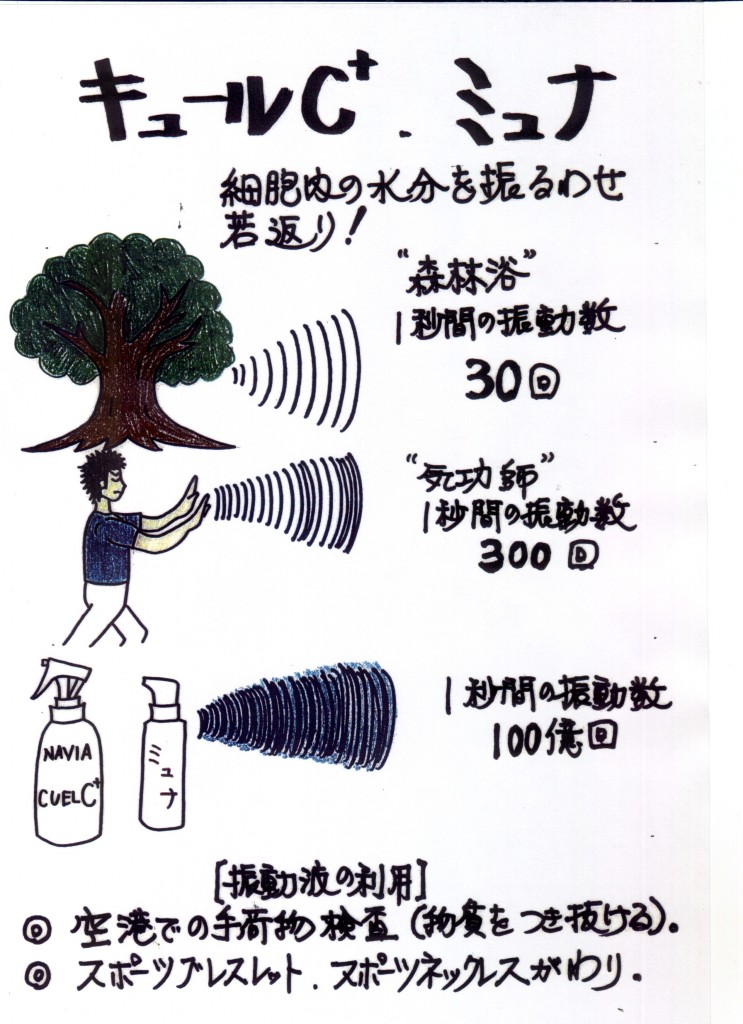 キュールC⁺.ミュナ
細胞内の水分を振るわせ
若返り!
"森林浴"
1秒間の振動数
30回
"気功師"
1秒間の振動数
300回
1秒間の振動数
100億回
NAVIA
CUELC⁺
ミュナ
[振動波の利用]
◎ 空港での手荷物検査(物質をつき抜ける)。
◎ スポーツブレスレット.スポーツネックレスがわり。